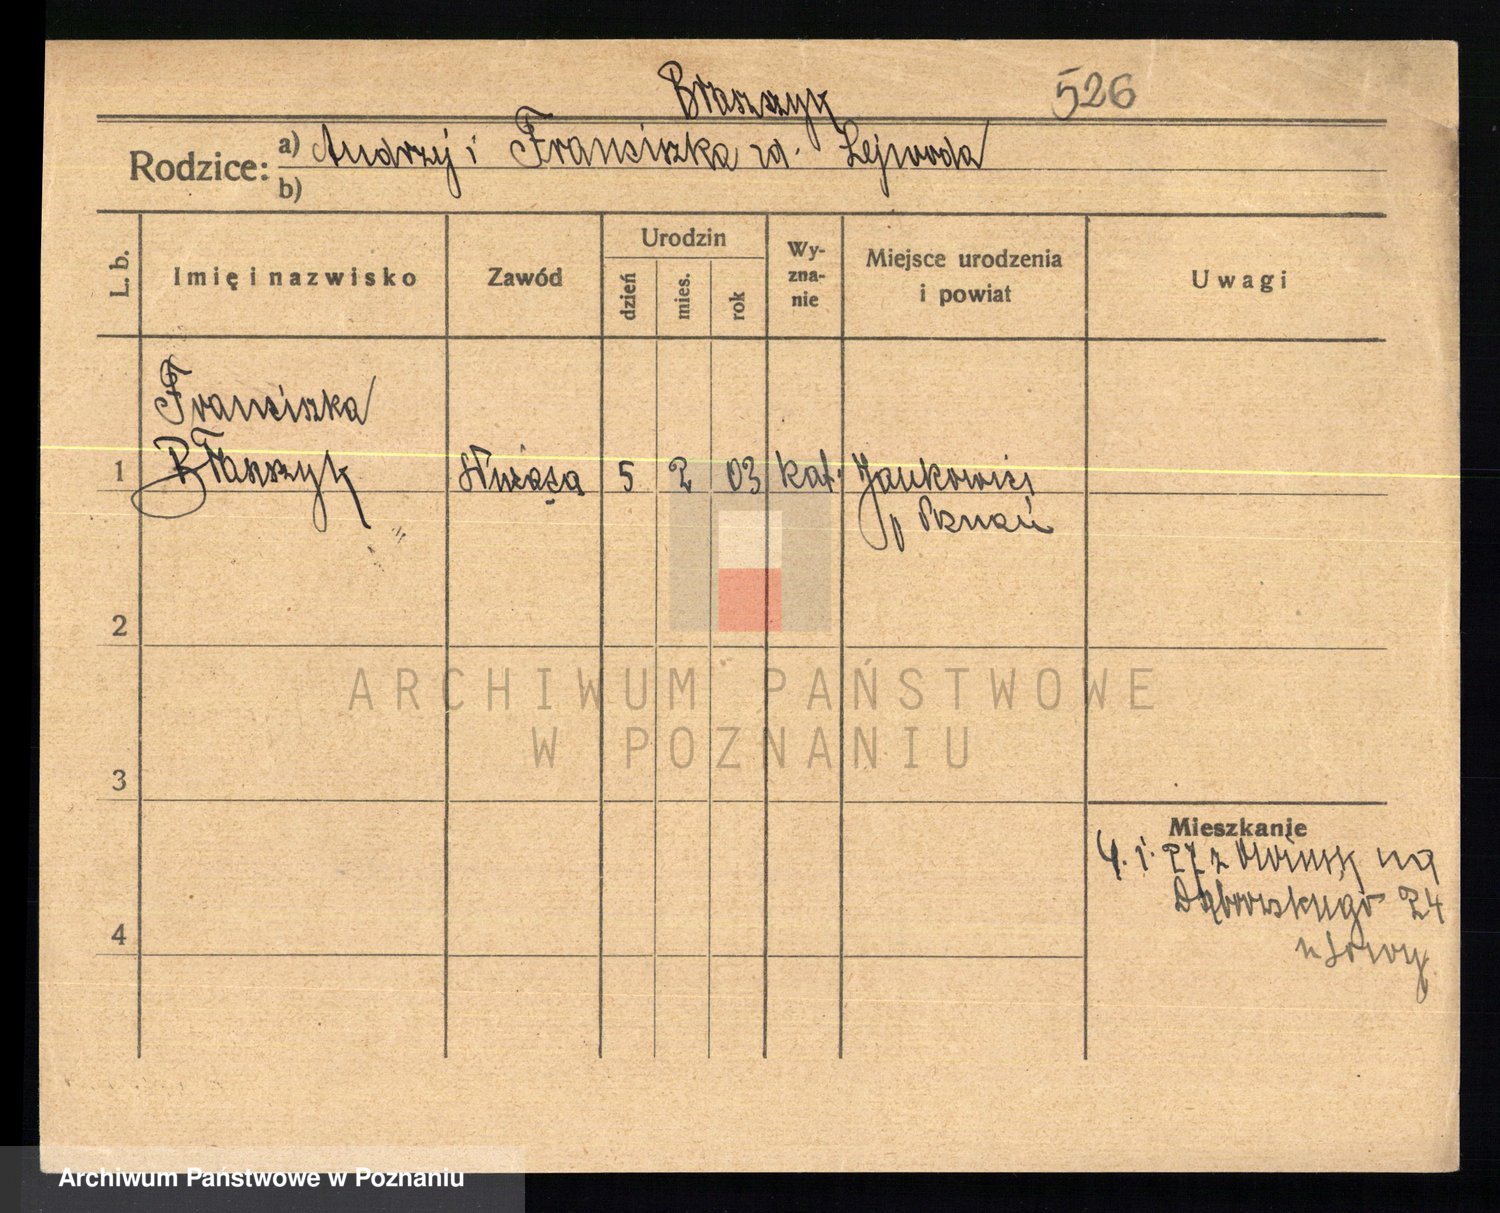 Błaszczyk
526
Rodzice: a) Andrzej i Franciszka zd. Lejwoda
b)
L. b.
Imię i nazwisko
Zawód
Urodzin
dzień
mies.
rok
Wy-
zna-
nie
Miejsce urodzenia
i powiat
Uwagi
Franciszka
1 Błaszczyk służąca 5 2 03 kat. Jankowice
p Poznań
2
3
4
Mieszkanie
4. 1. 27 z na
Dąbrowskiego 24
ARCHIWUM PAŃSTWOWE
W POZNANIU
Archiwum Państwowe w Poznaniu